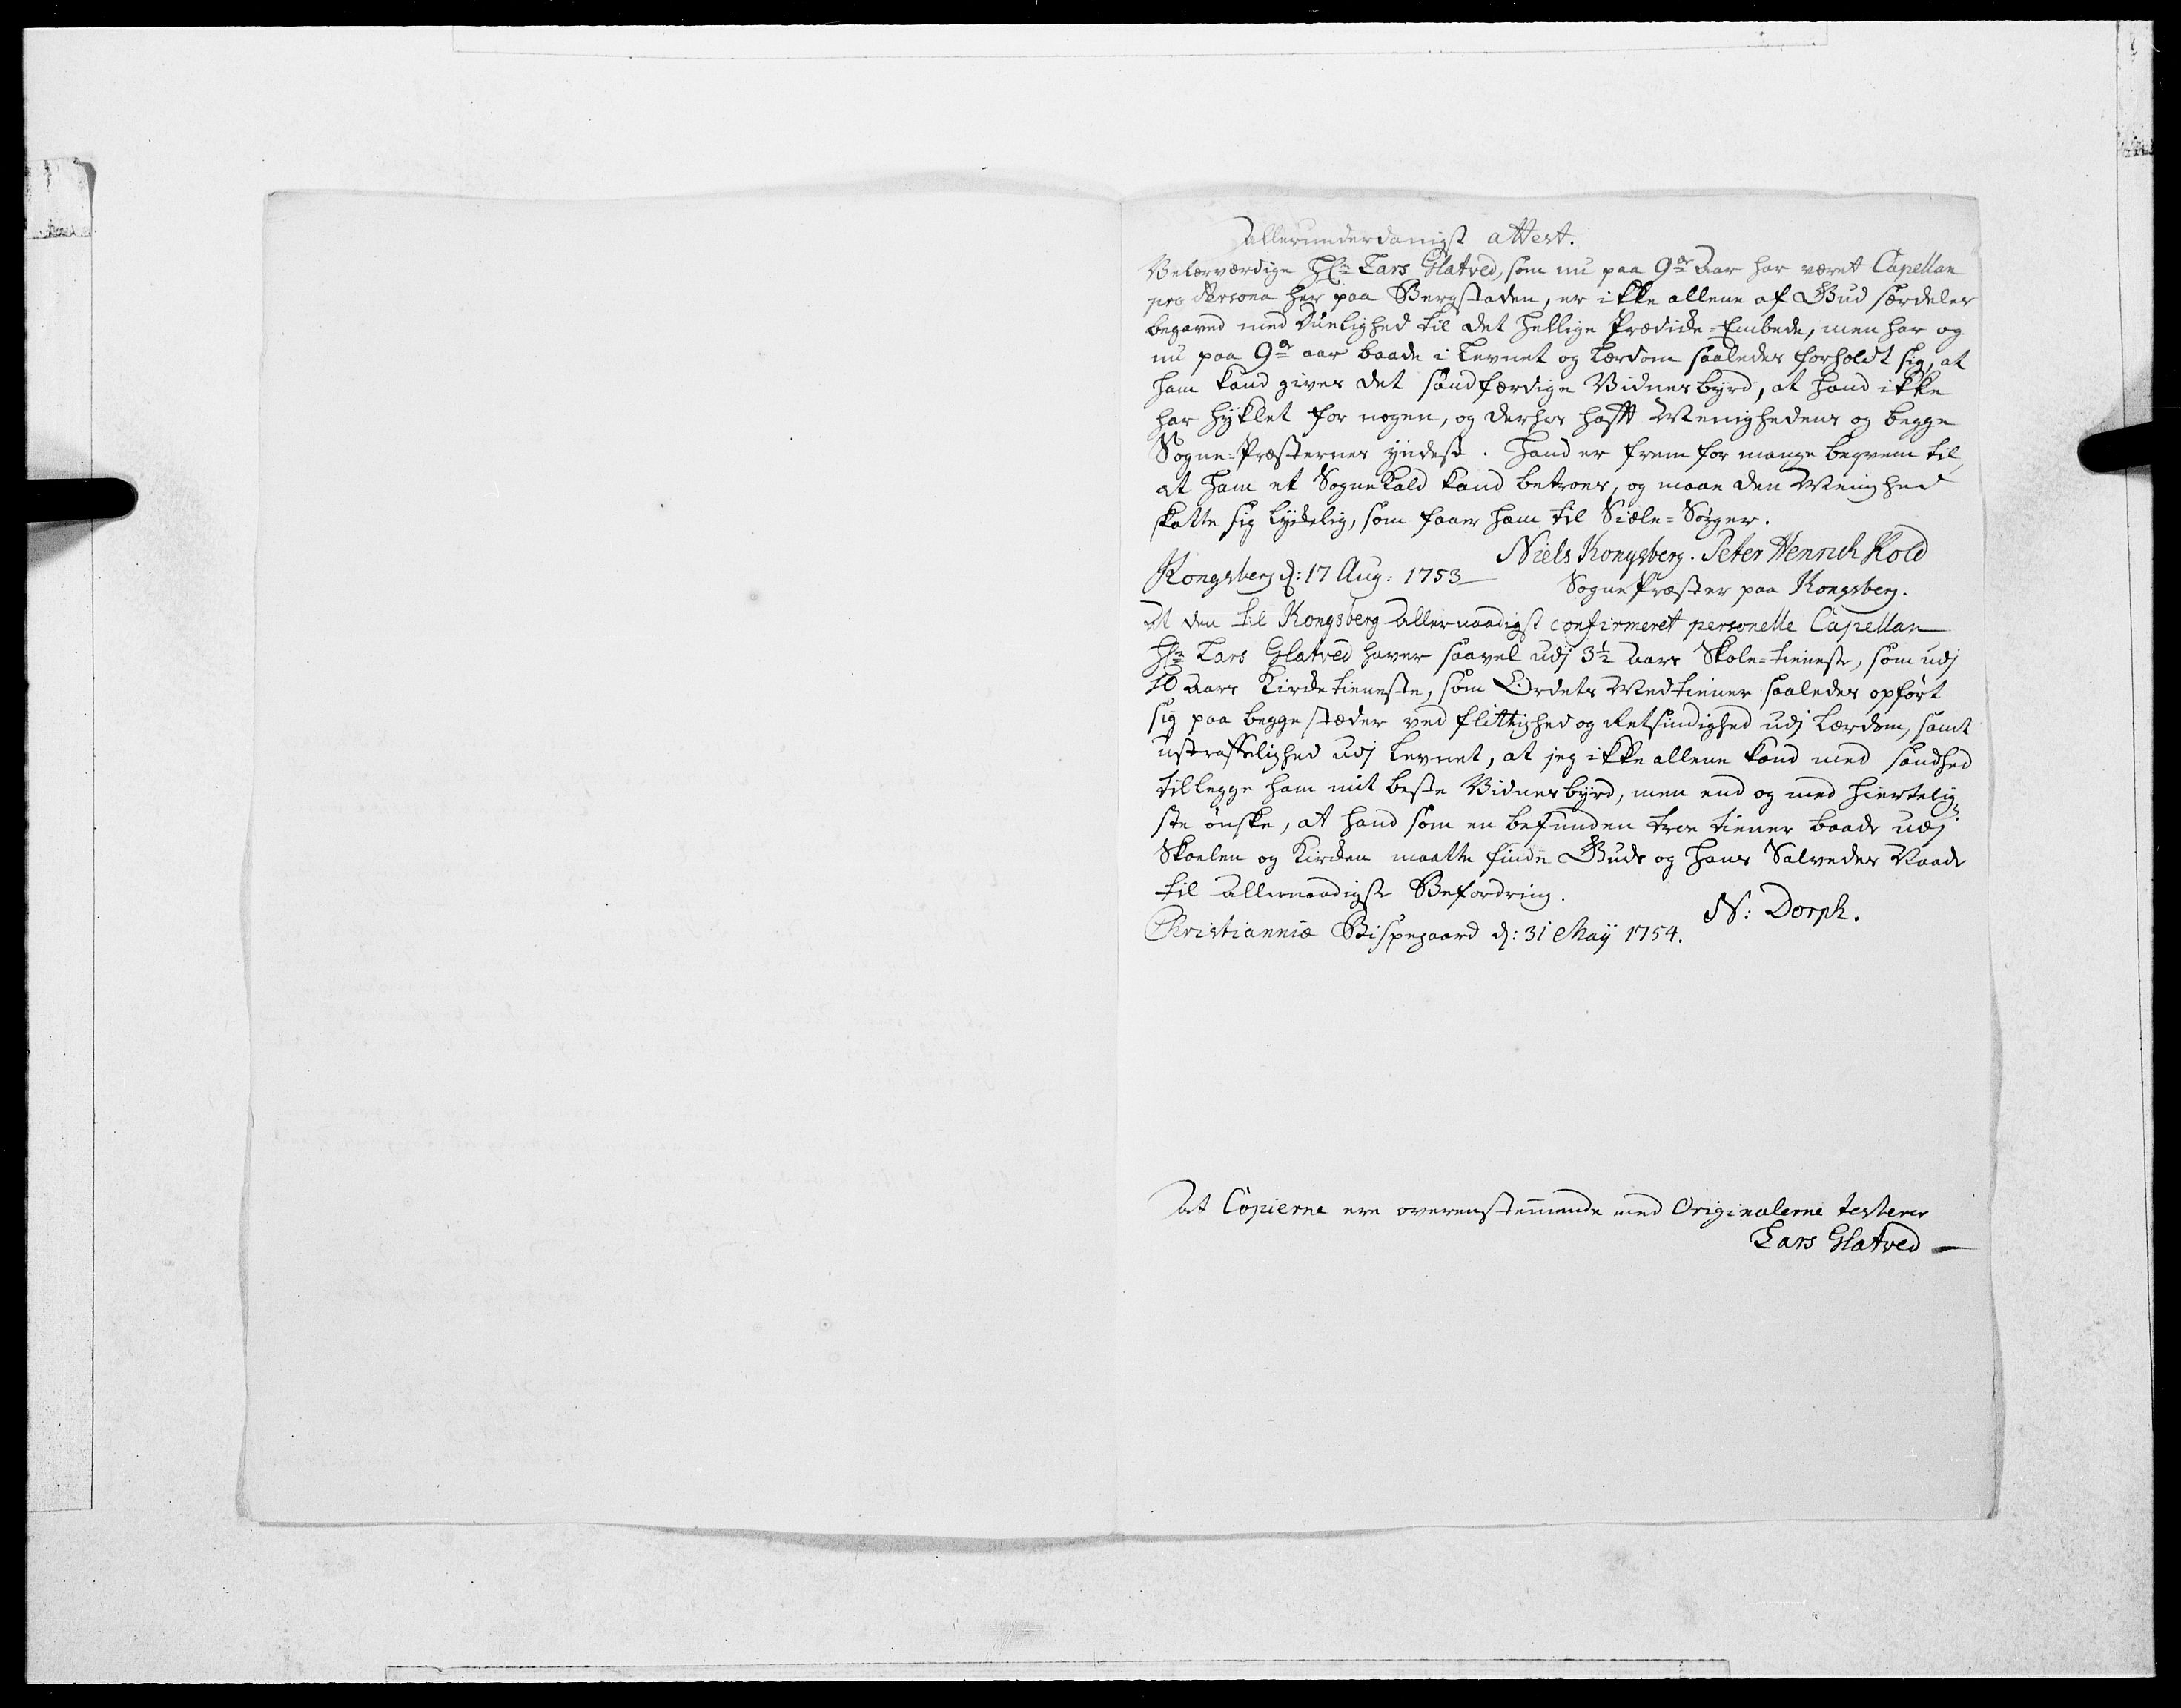 Allerunderdanigst attest.
Velærværdige Hr: Lars Glatved, som nu paa 9de Aar har været Capellan
pro Persona her paa Bergstaden, er ikke allene af Gud særdeles
begaved med Duelighed til det hellige Prædike-Embede, men har og
nu paa 9de aar baade i Levnet og Lærdom saaledes forholdt sig, at
ham kand gives det sandfærdige Vidnesbyrd, at hand ikke
har hyklet for nogen, og derhos hafft Menighedens og begge
Sogne-Præsternes yndest. Hand er frem for mange beqvem til,
at ham et Sognekald kand betroes, og maae den Menighed
skatte sig lydelig, som faaer ham til Siæle-Sørger.
Niels Kongsberg. Peter Henrich Kold
Kongsberg d: 17 Aug: 1753
SognePræster paa Kongsberg.
At den til Kongsberg allernaadigst confirmeret personelle Capellan
Hr: Lars Glatved haver saavel udj 3½ Aars Skole-tieneste, som udj
10 Aars Kirketieneste, som Ordets Medtiener saaledes opført
sig paa begge stæder ved flittighed og Retsindighed udj Lærdom, samt
ustraffelighed udj Levnet, at jeg ikke allene kand med sandhed
tillegge ham mit beste Vidnesbyrd, men end og med hiertelig,
ste ønske, at hand som en befunden troe tiener baade udj
Skoelen og Kirken maatte finde Guds og Hans Salvedes Naade
til allernaadigst Befordring.
N: Dorph.
Christianniæ Bispegaard d: 31 Maij 1754.
At Copierne ere overenstemmende med Originalerne testerer
Lars Glatved